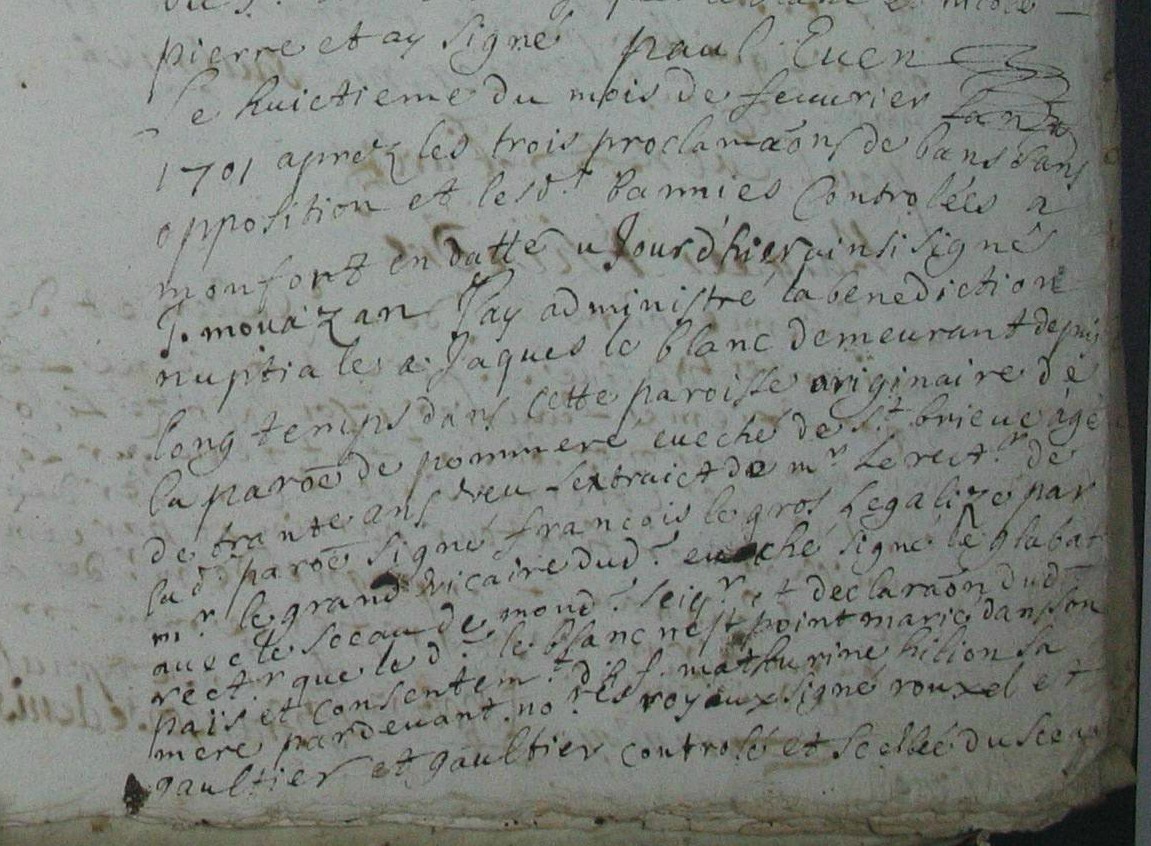 pierre et ay signé paul Euen
le huictieme du mois de feuurier l'an
1701 aprez les trois proclamaõns de bans sans
opposition et lesd.t bannies Controlées a
monfort en datte du Jour d'hier ainsi signé
J. mouazan J'ay administré la benediction
nuptiale a Jaques le blanc demeurant depuis
long temps dans cette paroisse originaire de
la paroe de pommeré eueché de s.t brieuc âgé
de trante ans veu lextraict de m.r le rect.r de
lad. paroe signé francois le gros Legalizé par
m.r le grand vicaire dud.t eueché signé
auec le sceau de mond.t seig.r et declaraõn dud.
rect.r que le d.t le blanc nest point marié dans son
pais et consentem.t mathurine hilion sa
mere pardeuant no.res royaux signé rouxel et
gaultier et gaultier controlé et scellée du sceau